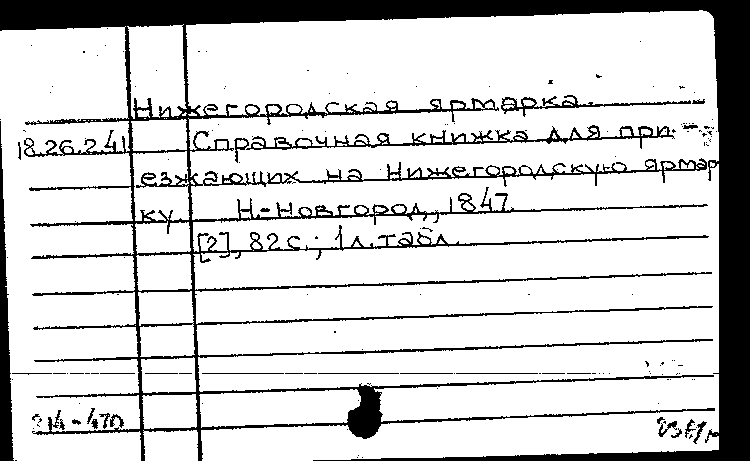 Нижегородская ярмарка.
18.26.2.41 Справочная книжка для при-
езжающих на Нижегородскую ярмар
ку. Н.-Новгород, 1847.
[2], 82 с.; 1 л. табл.
214-470